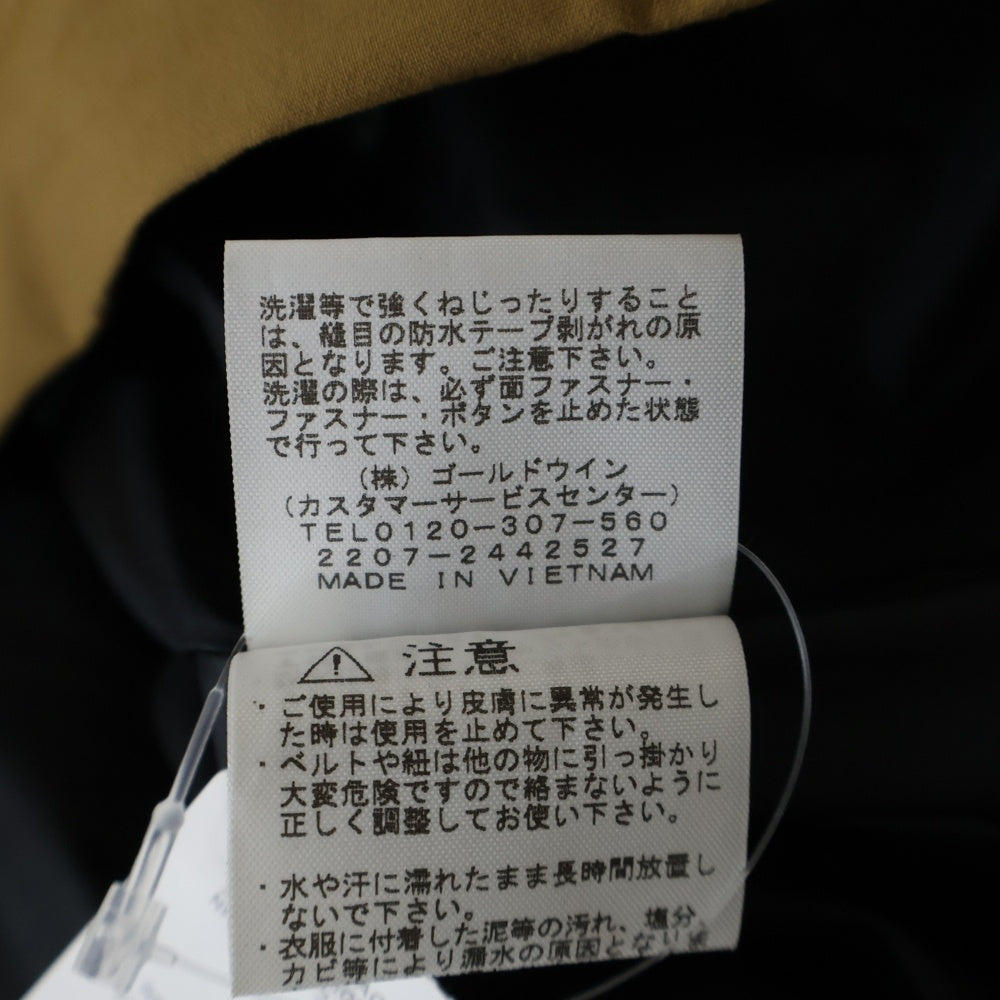 洗濯等で強くねじったりすること
は、縫目の防水テープ剥がれの原
因となります。ご注意下さい。
洗濯の際は、必ず面ファスナー・
ファスナー・ボタンを止めた状態
で行って下さい。
(株)ゴールドウイン
(カスタマーサービスセンター)
TEL0120-307-560
2207-2442527
MADE IN VIETNAM
注意
・ご使用により皮膚に異常が発生し
た時は使用を止めて下さい。
・ベルトや紐は他の物に引っ掛かり
大変危険ですので絡まないように
正しく調整してお使い下さい。
・水や汗に濡れたまま長時間放置し
ないで下さい。
・衣服に付着した泥等の汚れ、塩分、
カビ等により漏水の原因とな